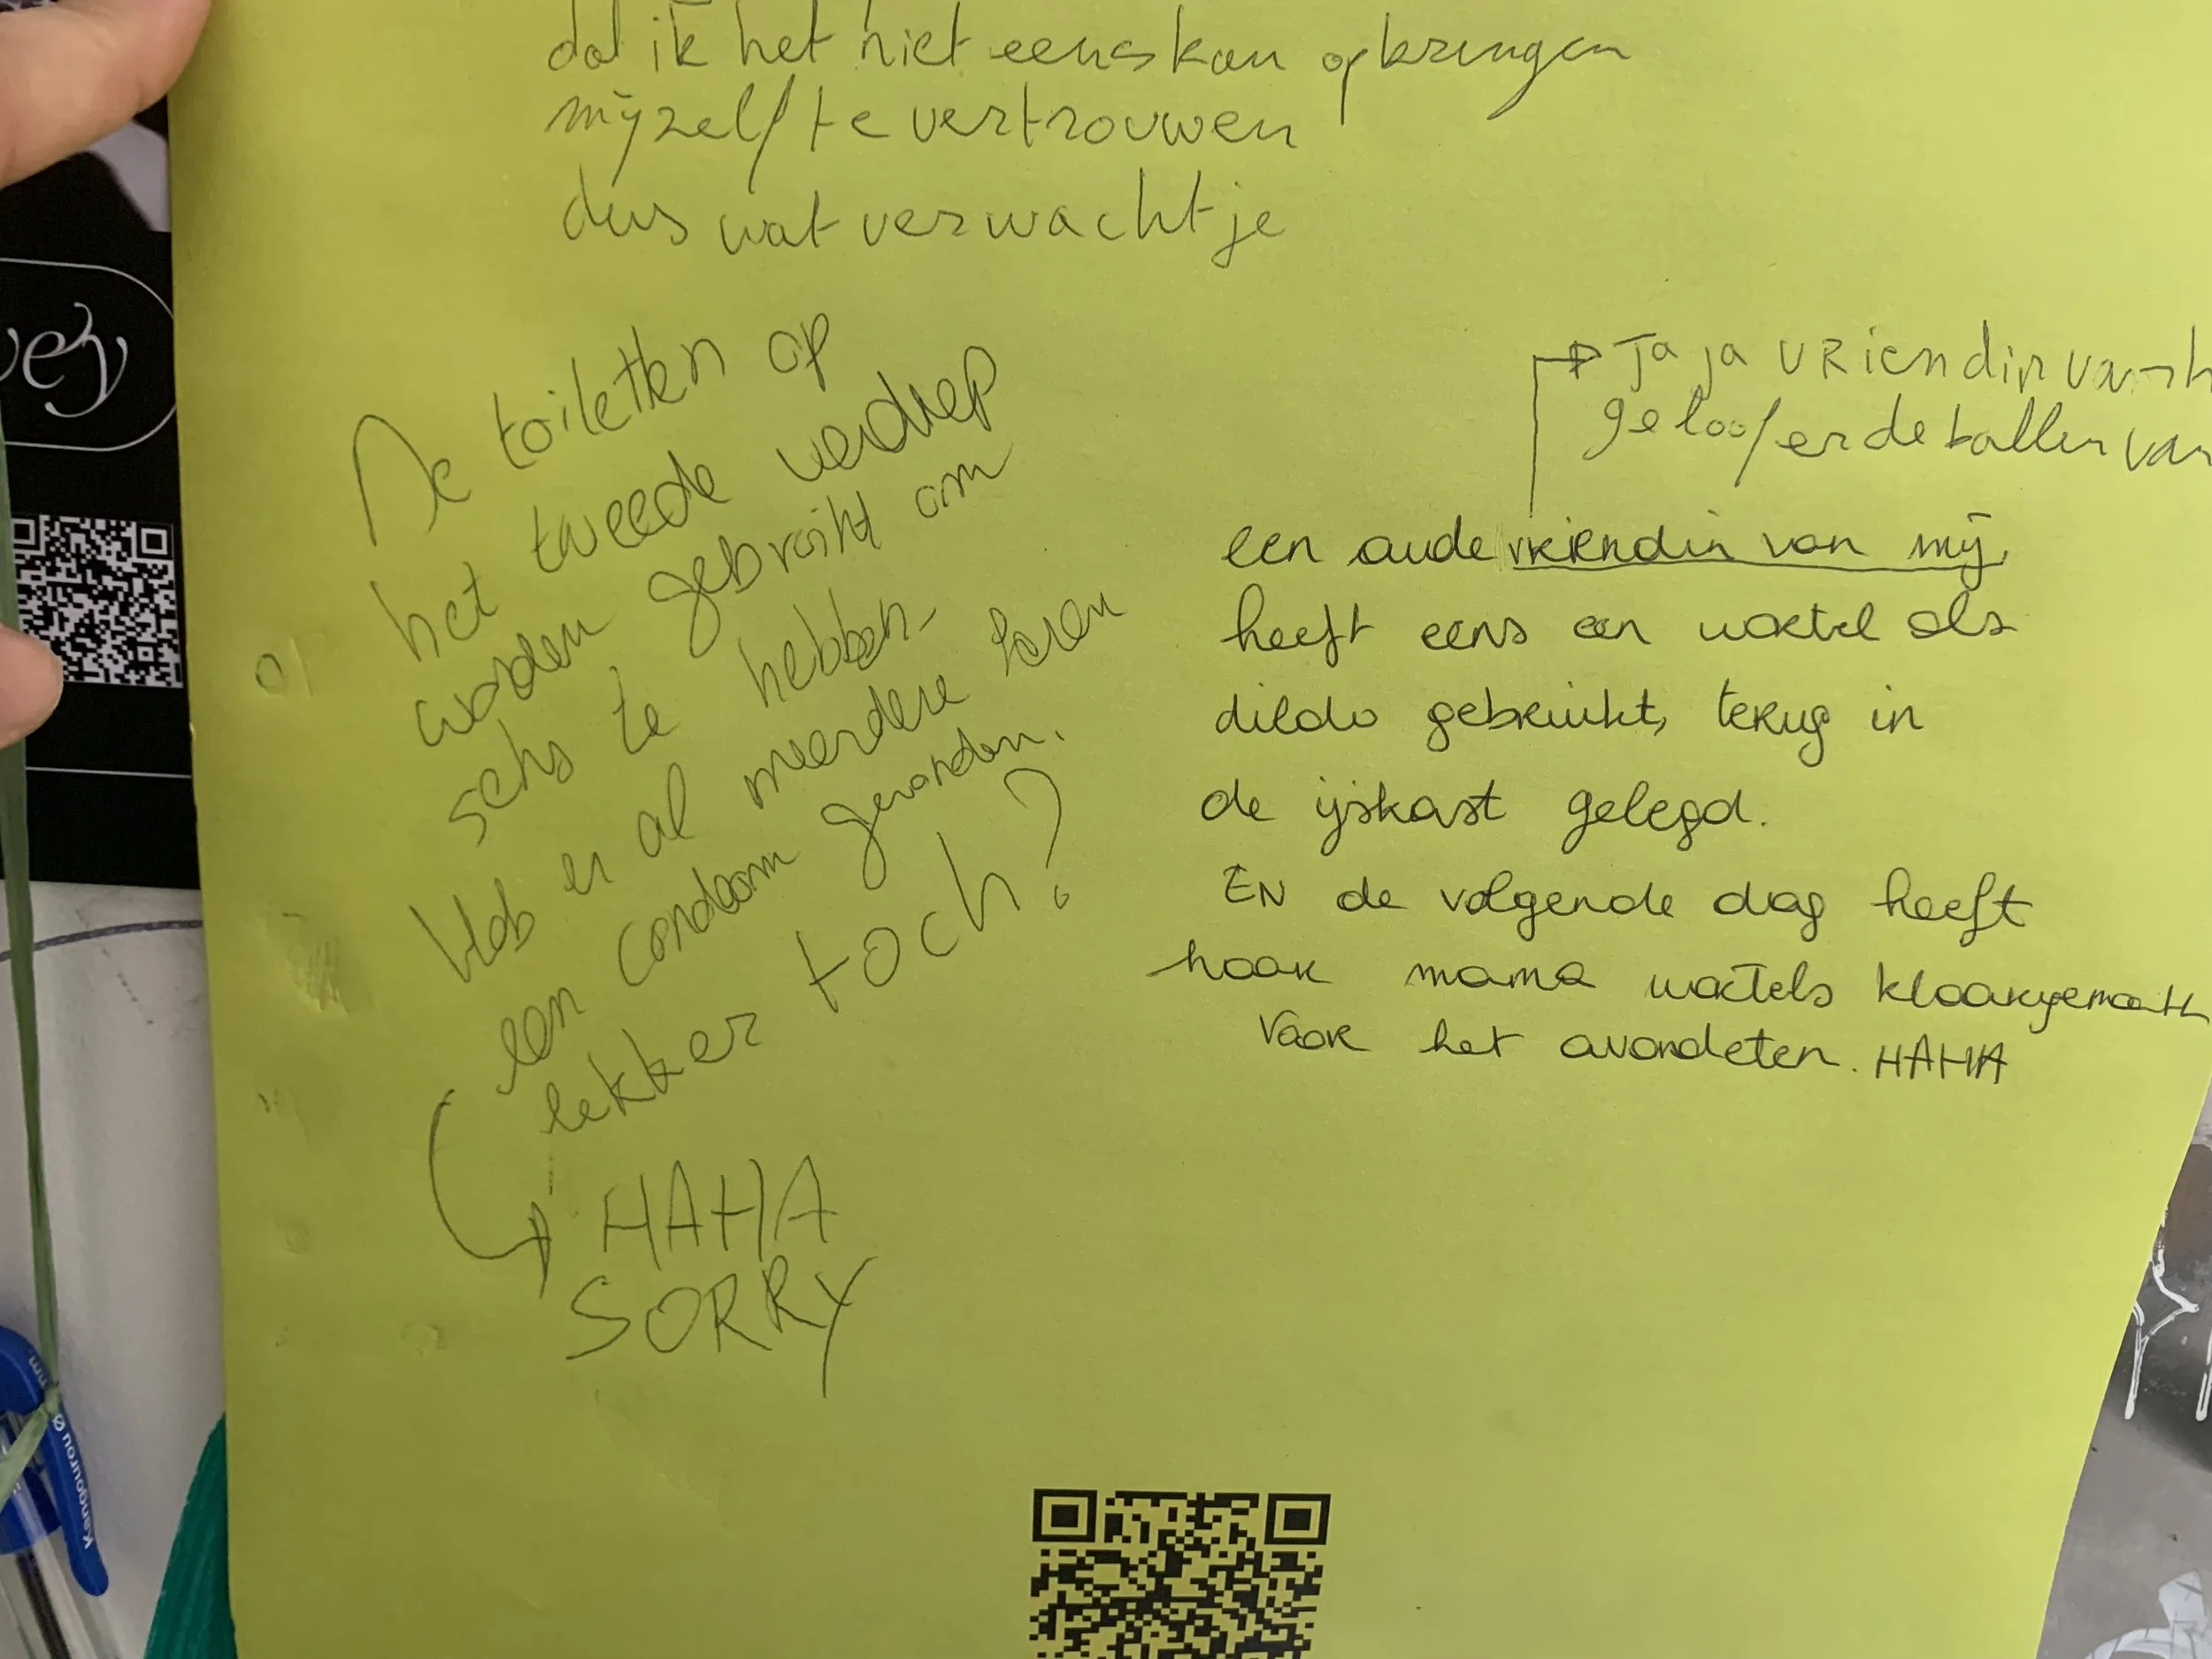 dat ik het niet eens kan opbrengen
mijzelf te vertrouwen
dus wat verwacht je
vey
De toiletten op
het tweede verdiep
worden gebruikt om
seks te hebben
Heb er al meerdere keren
een condoom gevonden.
lekker toch?
HAHA
SORRY
Ja ja vriendin van
geloof er de ballen van
een oude vriendin van mij
heeft eens een wortel als
dildo gebruikt, terug in
de ijskast gelegd.
EN de volgende dag heeft
haar mama wortels klaargemaakt
voor het avondeten. HAHA
Kangourou